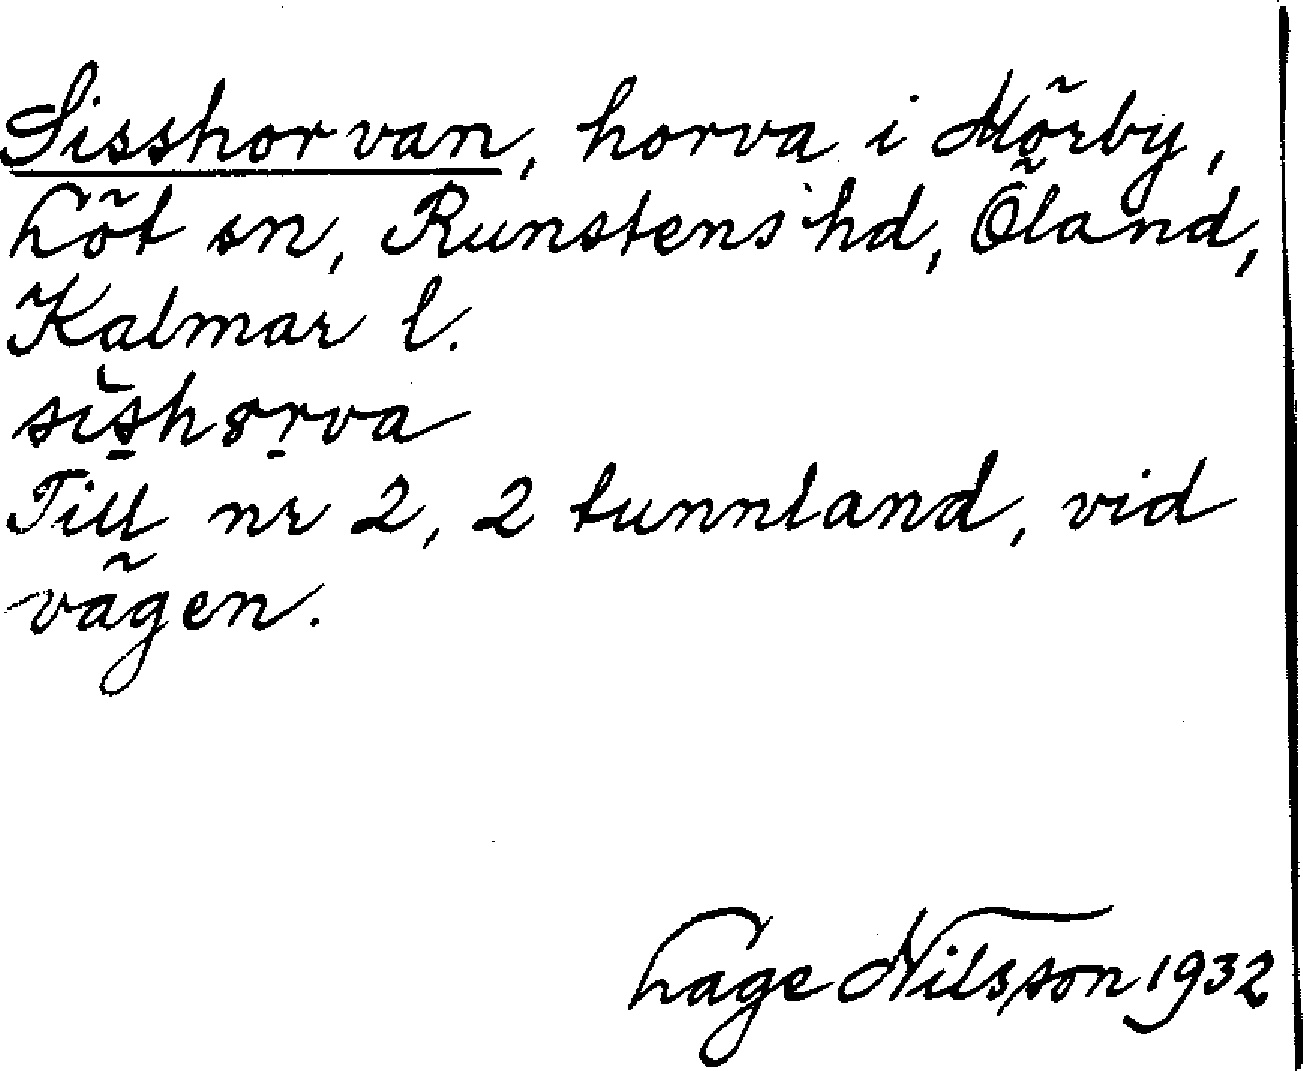 Sisshorvan, horva i Mörby,
Löt sn, Runstens hd, Öland,
Kalmar l.
sìs̠h8r̠va
Till nr 2, 2 tunnland, vid
vägen.
Lage Nilsson 1932